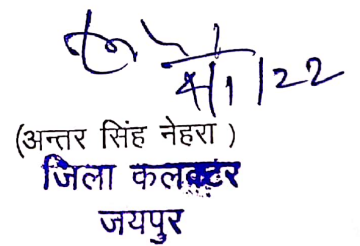 4/1/22
(अन्तर सिंह नेहरा )
जिला कलक्टर
जयपुर